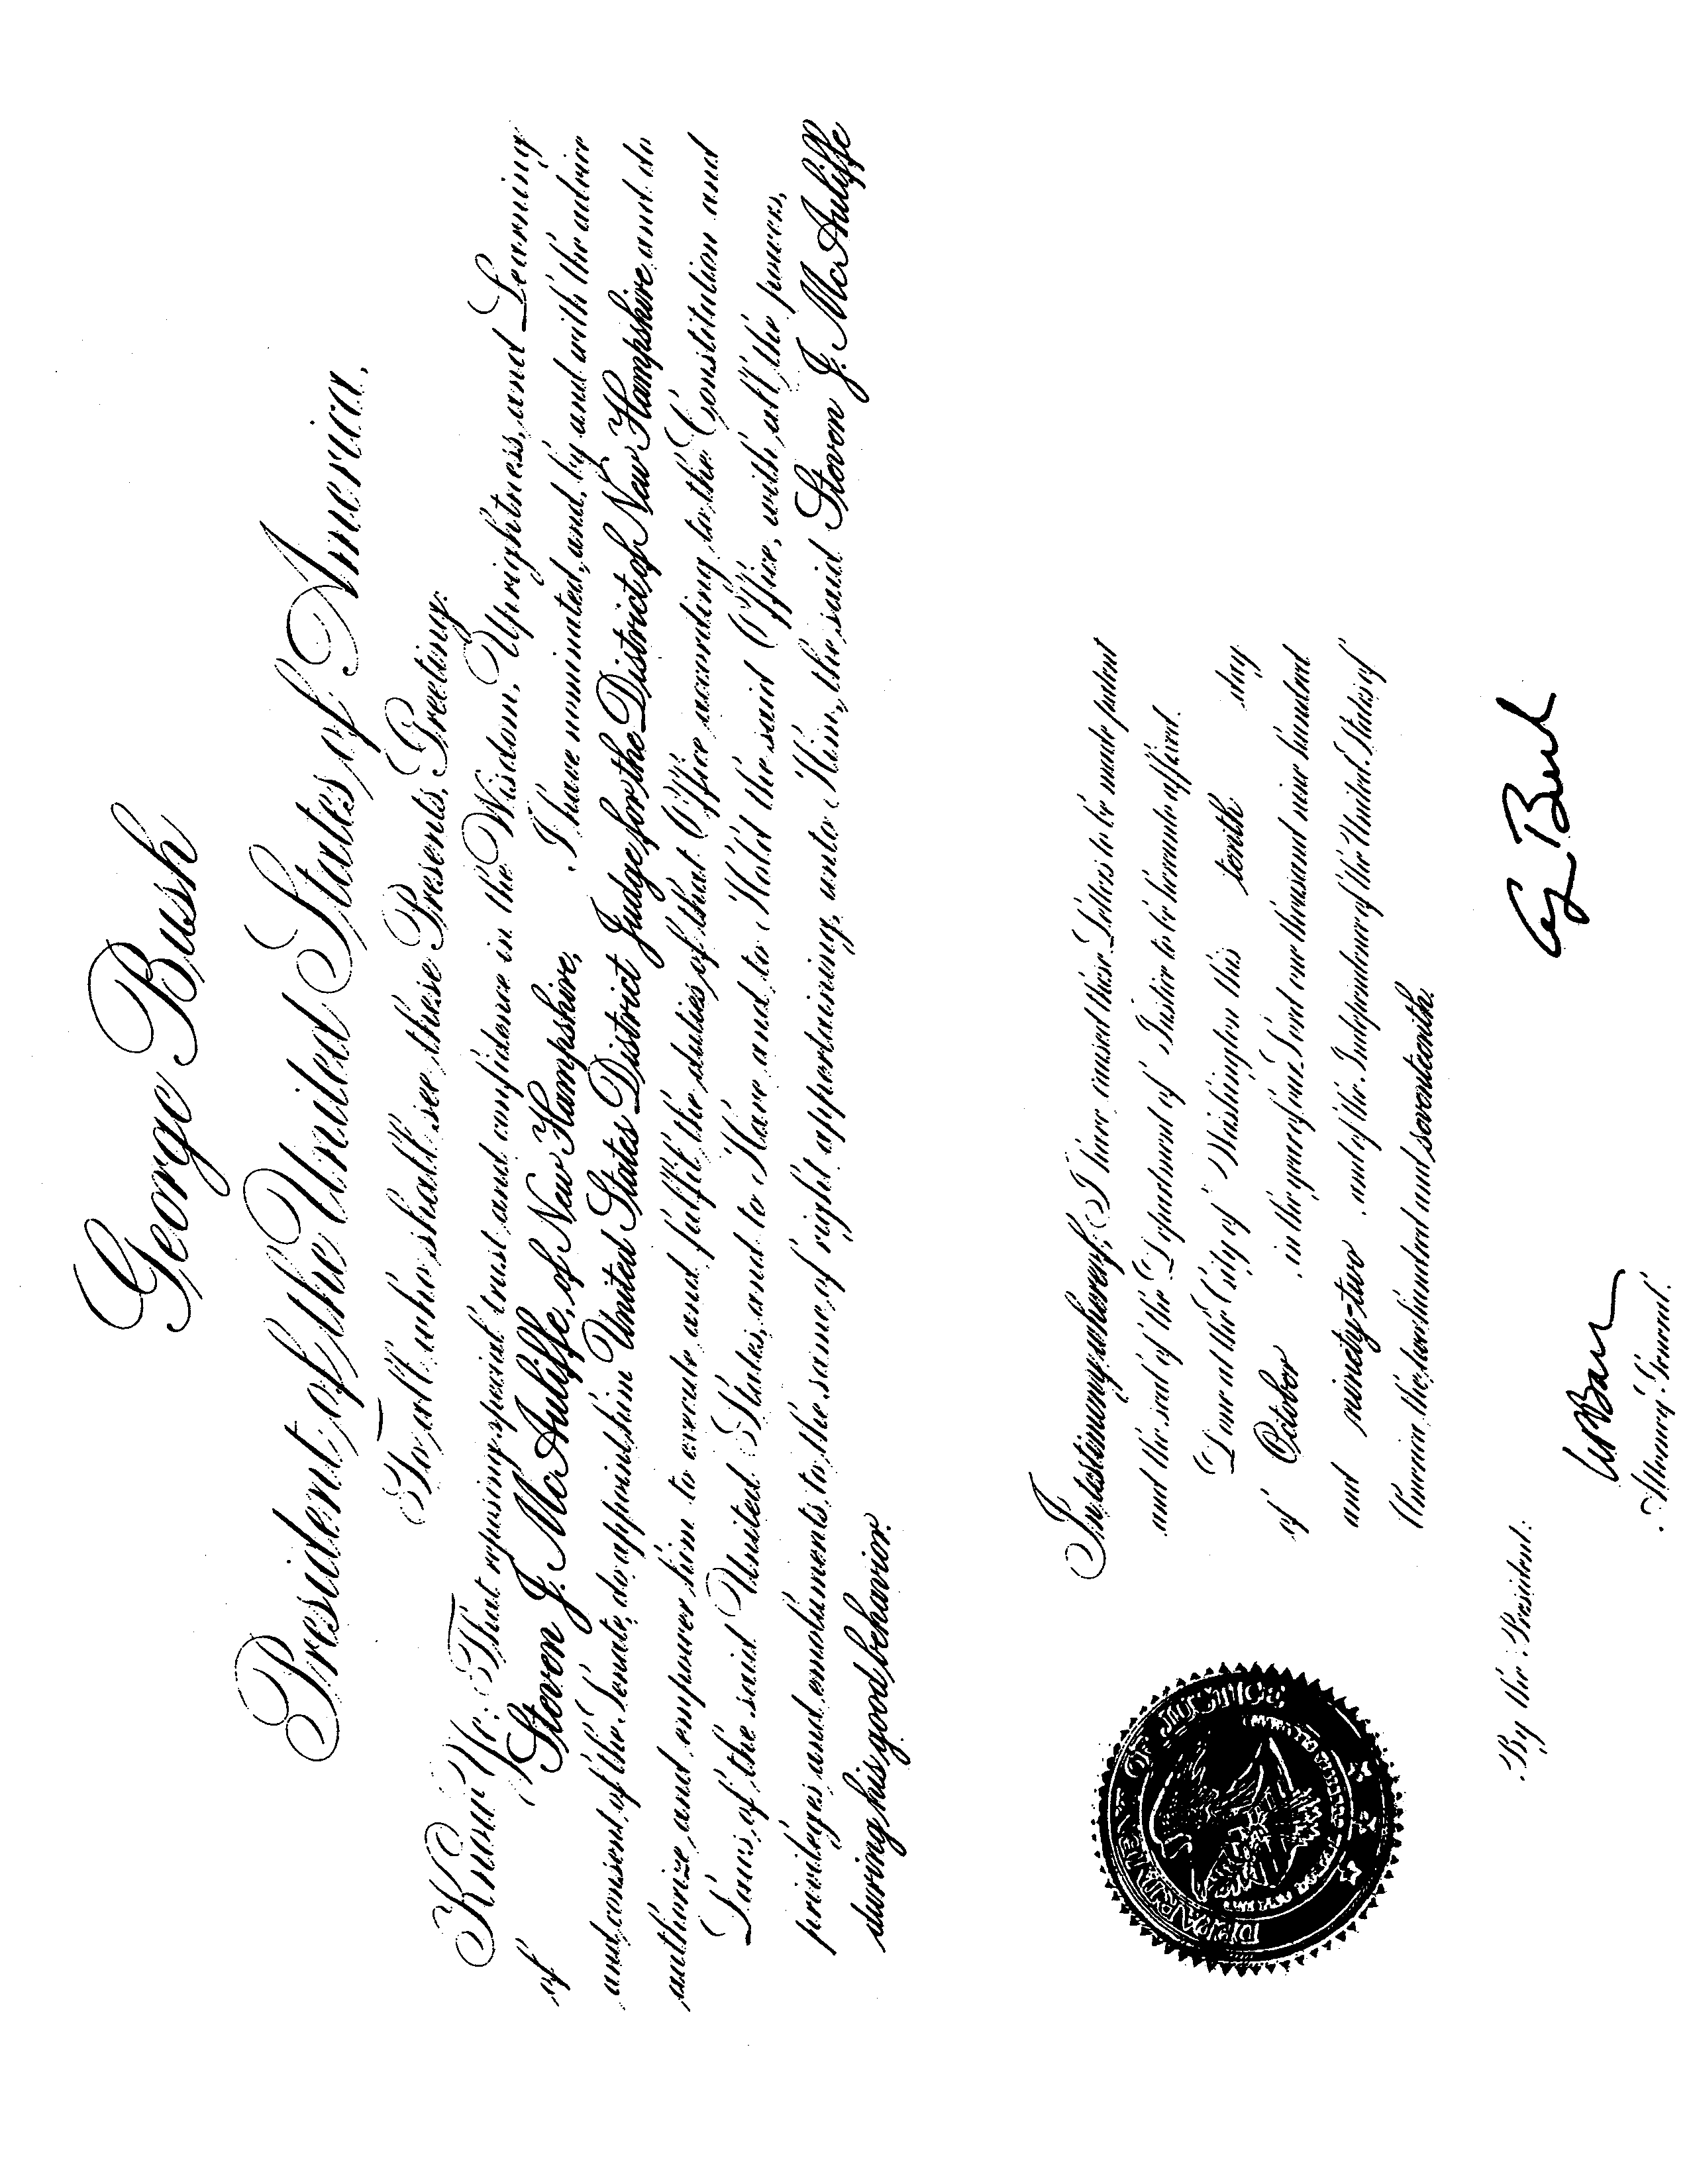 George Bush
President of the United States of America,
To all who shall see these Presents, Greeting:
Know Ye: That reposing special trust and confidence in the Wisdom, Uprightness, and Learning
of Steven J. McAuliffe, of New Hampshire, I have nominated, and, by and with the advice
and consent of the Senate, do appoint him United States District Judge for the District of New Hampshire and do
authorize and empower him to execute and fulfil the duties of that Office according to the Constitution and
Laws of the said United States, and to Have and to Hold the said Office, with all the powers,
privileges and emoluments to the same of right appertaining, unto Him, the said Steven J. McAuliffe
during his good behavior.
In testimony whereof, I have caused these Letters to be made patent
and the seal of the Department of Justice to be hereunto affixed.
Done at the City of Washington this tenth day
of October in the year of our Lord one thousand nine hundred
and ninety-two and of the Independence of the United States of
America the two hundred and seventeenth.
G Bush
By the President:
W P Barr
Attorney General.
DEPARTMENT OF JUSTICE